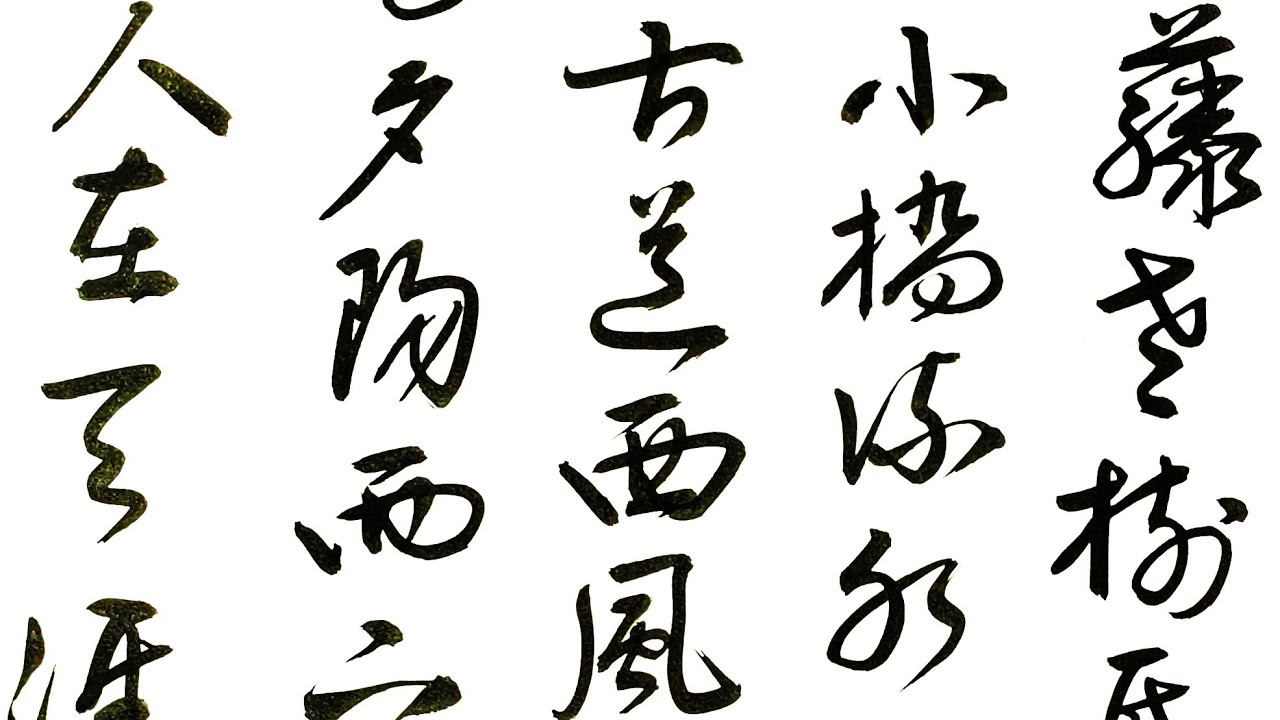 藤老樹昏
小橋流水
古道西風
夕陽西下
人在天涯